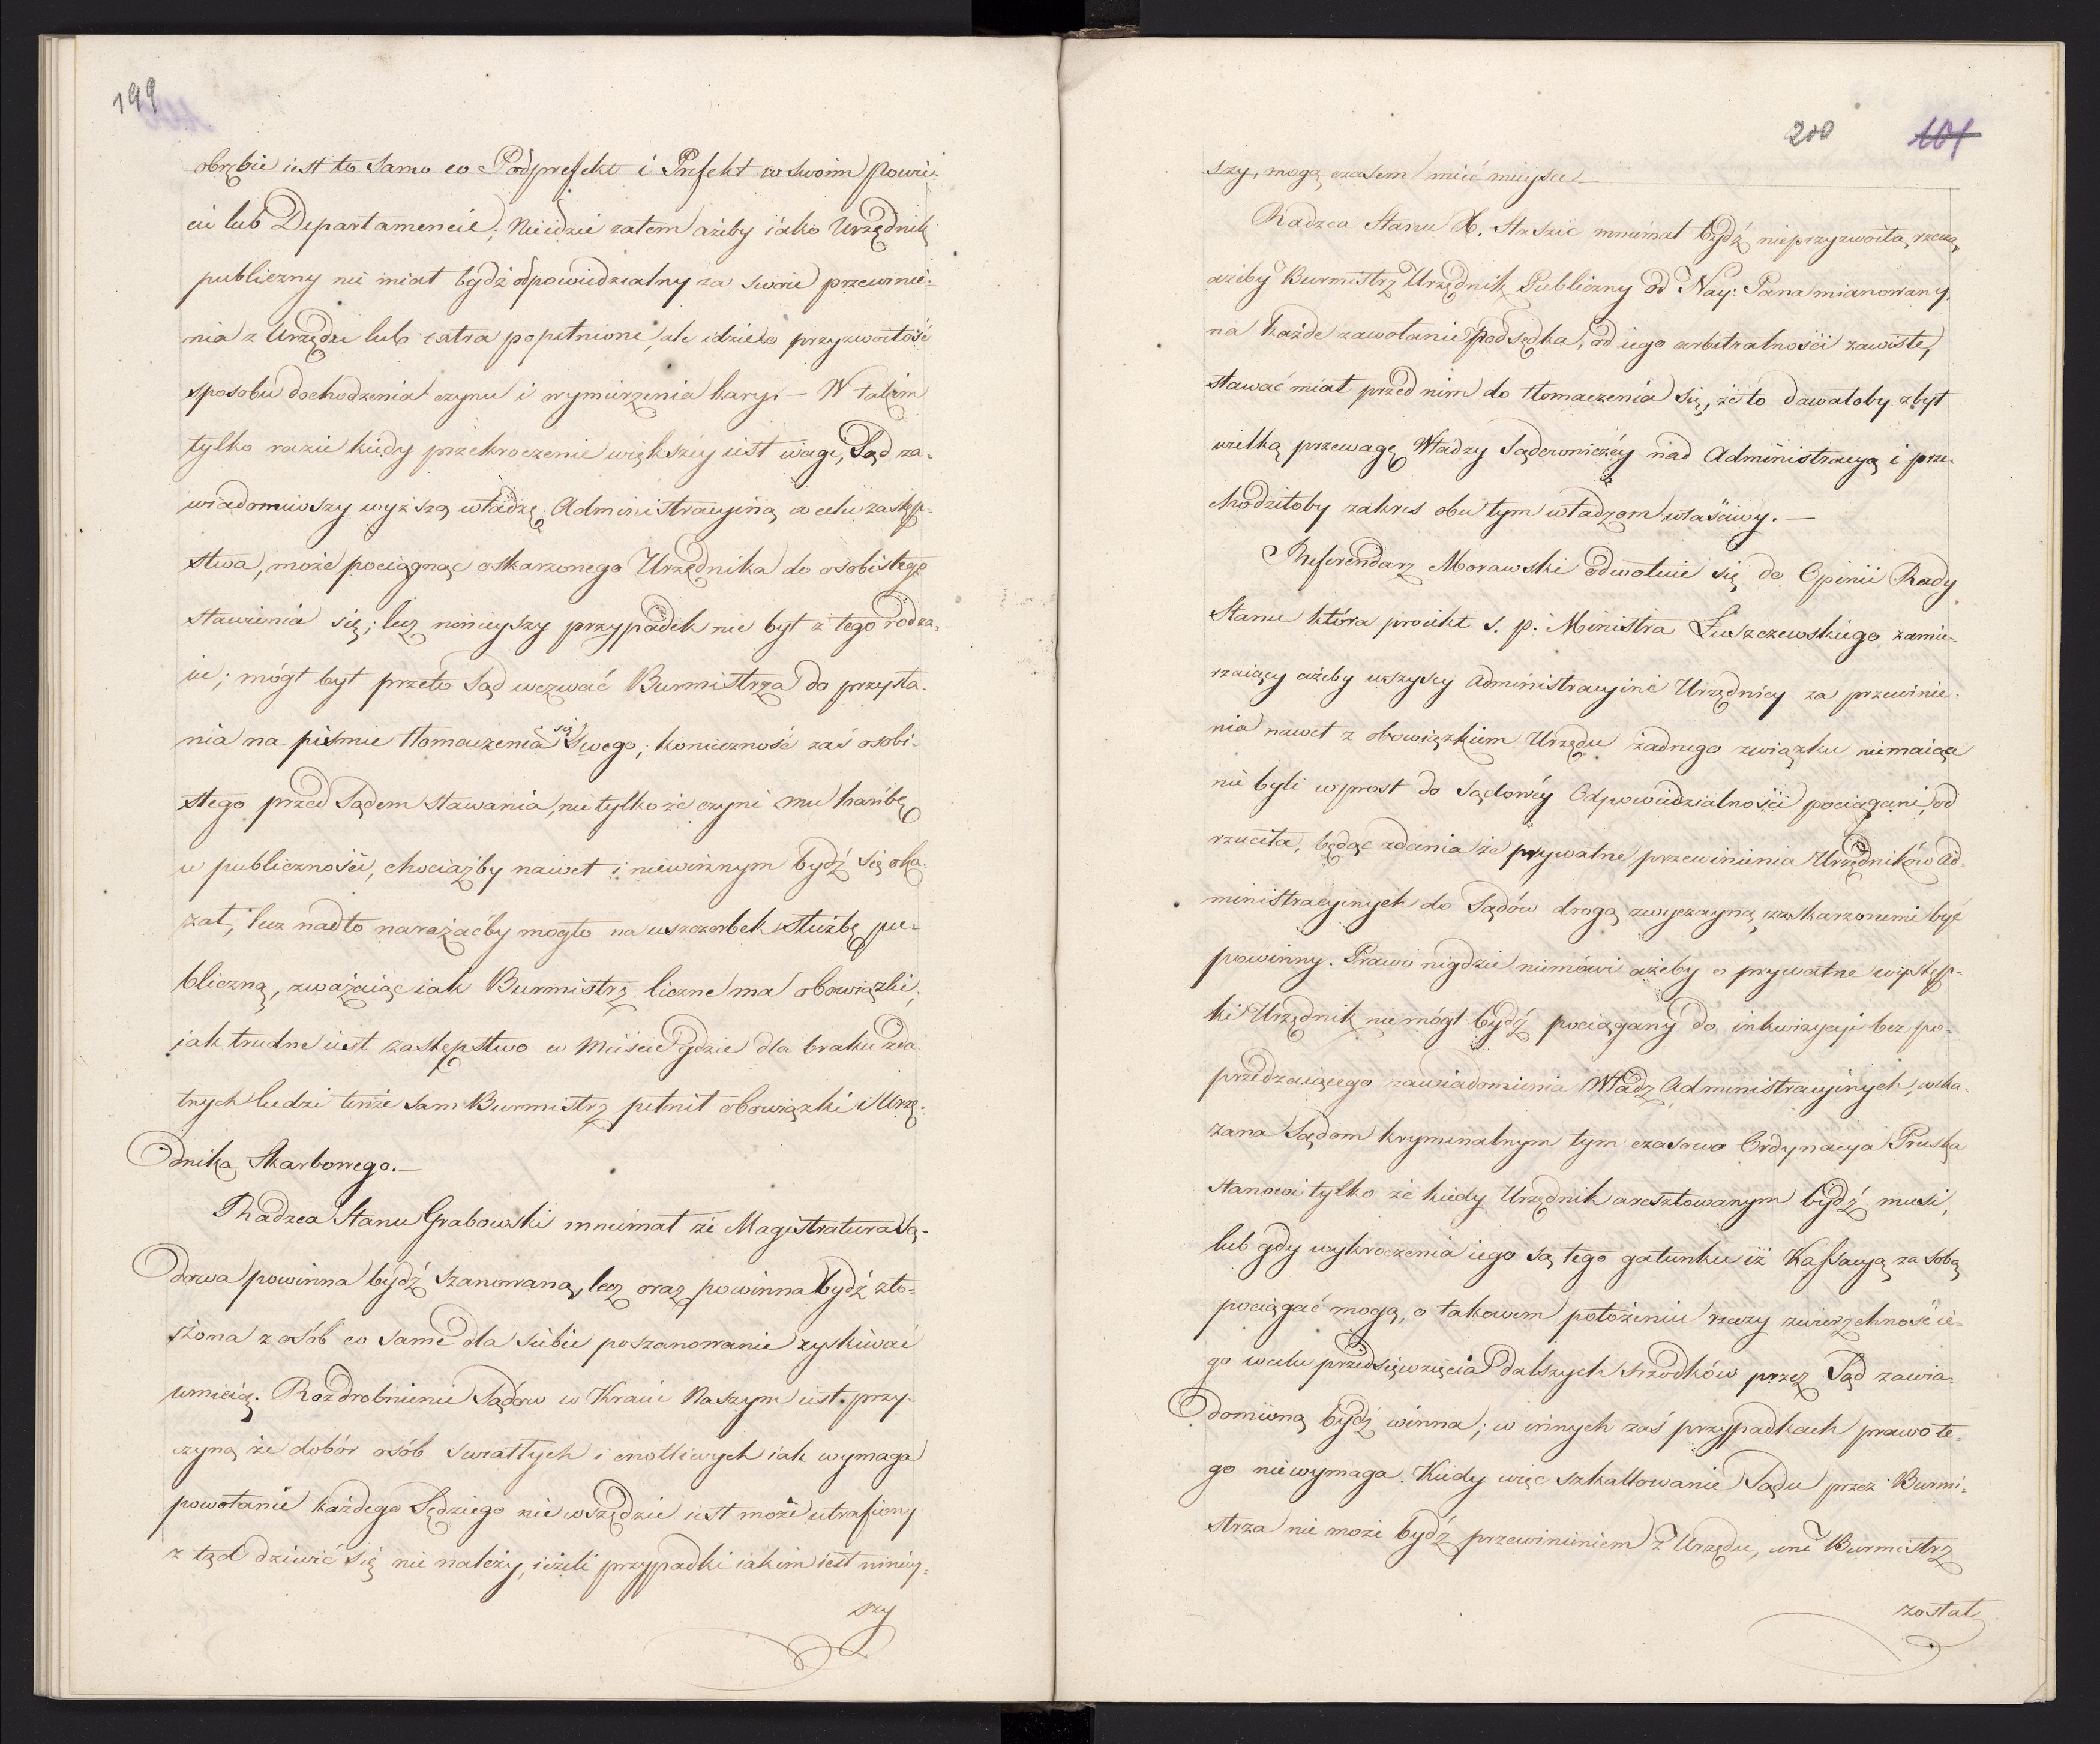 199
obrębie iest to samo co Podprefekt i Prefekt w swoim powie-
cie lub Departamencie; Nieidzie zatem ażeby iako Urzędnik
publiczny nie miał bydź odpowiedzialny za swoie przewinie-
nia z Urzędu lub extra popełnione, ale idzie o przyzwoitość
sposobu dochodzenia czynu i wymierzenia kary. — W takim
tylko razie kiedy przekroczenie większéy iest wagi, Sąd za-
wiadomiwszy wyższą władzę Administracyiną w celu zastęp-
stwa, może pociągnąć oskarżonego Urzędnika do osobistego
stawienia się; lecz ninieyszy przypadek nie był z tego rodza-
iu; mógł był przeto Sąd wezwać Burmistrza do przysła-
nia na piśmie tłomaczenia się swego; konieczność zaś osobi-
stego przed Sądem stawania, nie tylko że czyni mu hańbę
w publiczności, chociażby nawet i niewinnym bydź się oka-
zał, lecz nadto narażaćby mogło na uszczerbek służbę pu-
bliczną, zważaiąc iak Burmistrz liczne ma obowiązki,
iak trudne iest zastępstwo w Mieście gdzie dla braku zda
tnych ludzi tenże sam Burmistrz pełnił obowiązki i Urzę-
dnika Skarbowego. —
Radzca Stanu Grabowski mniemał że Magistratura Są-
dowa powinna bydź szanowaną, lecz oraz powinna bydź zło-
żona z osób co same dla siebie poszanowanie zyskiwać
umieią. Rozdrobnienie Sądów w Kraiu Naszym iest przy-
czyną że dobór osób światłych i cnotliwych iak wymaga
powołanie każdego Sędziego nie wszędzie iest może utrafiony
z tąd dziwić się nie należy, ieżeli przypadki iakim iest niniey-
szy
200
101
szy, mogą czasem mieć mieysce —
Radzca Stanu X. Staszic mniemał bydź nieprzyzwoitą rzeczą,
ażeby Burmistrz Urzędnik Publiczny od Nay: Pana mianowany,
na każde zawołanie Podsędka, od iego arbitralności zawisłe,
stawać miał przed nim do tłomaczenia się, że to dawałoby zbyt
wielką przewagę Władzy Sądowniczéy nad Administracyą i prze-
chodziłoby zakres obu tym władzom właściwy. —
Referendarz Morawski odwołuie się do Opinii Rady
Stanu która proiekt ś. p. Ministra Łuszczewskiego zamie-
rzaiący ażeby wszyscy Administracyini Urzędnicy za przewinie-
nia nawet z obowiązkiem Urzędu żadnego związku niemaiące
nie byli wprost do sądowéy Odpowiedzialności pociągani, od
rzuciła, będąc zdania że prywatne przewinienia Urzędników Ad-
ministracyinych do Sądów drogą zwyczayną zaskarżonemi być
powinny. Prawo nigdzie niemówi ażeby o prywatne występ-
ki Urzędnik nie mógł bydź pociągany do inkwizycyi bez po-
przedzaiącego zawiadomienia Władz Administracyinych, wska-
zana Sądom kryminalnym tym czasowo Ordynacya Pruska
stanowi tylko że kiedy Urzędnik aresztowanym bydź musi,
lub gdy wykroczenia iego są tego gatunku iż Kassacyą za sobą
pociągać mogą, o takowem położeniu rzeczy zwierzchność ie-
go w celu przedsięwzięcia dalszych srzodków przez Sąd zawia-
domioną bydź winna; w innych zaś przypadkach prawo te-
go niewymaga. Kiedy więc szkalowanie Sądu przez Burmi-
strza nie może bydź przewinieniem z Urzędu, ani Burmistrz
został